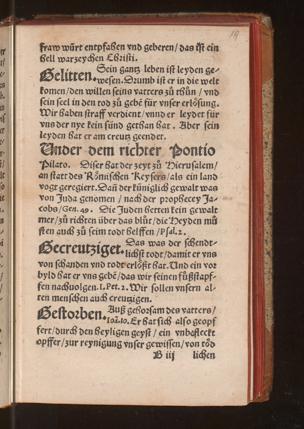 19
fraw würt entpfahen vnd geberen / das ist ein
hell warzeychen Christi.
Gelitten. Sein gantz leben ist leyden ge-
wesen. Drumb ist er in die welt
komen / den willen seins vatters zů thůn / vnd
sein seel in den tod zů gebē für vnser erlösung.
Wir haben straff verdient / vnnd er leydet für
vns der nye kein sünd gethan hat. Aber sein
leyden hat er am creutz geendet.
Vnder dem richter Pontio
Pilato. Diser hat der zeyt zů Hierusalem /
an statt des Römischen Keysers / als ein land
vogt geregiert. Dañ der küniglich gewalt was
von Juda genomen / nach der prophecey Ja-
cobs / Gen. 49. Die Juden hetten kein gewalt
mer / zů richten über das blůt / die Heyden mů
sten auch zů seim todt helffen / Psal. 2.
Gecreutziget. Das was der schendt-
lichst todt / damit er vns
von schanden vnd todt erlößt hat. Vnd ein vor
byld hat er vns gebē / das wir seinen fůßstapf-
fen nachuolgen. 1. Pet. 2. Wir sollen vnsern al-
ten menschen auch creutzigen.
Gestorben. Auß gehorsam des vatters /
Joā. 10. Er hat sich also geopf
fert / durch den heyligen geyst / ein vnbefleckt
opffer / zur reynigung vnser gewissen / von töd
B iij lichen